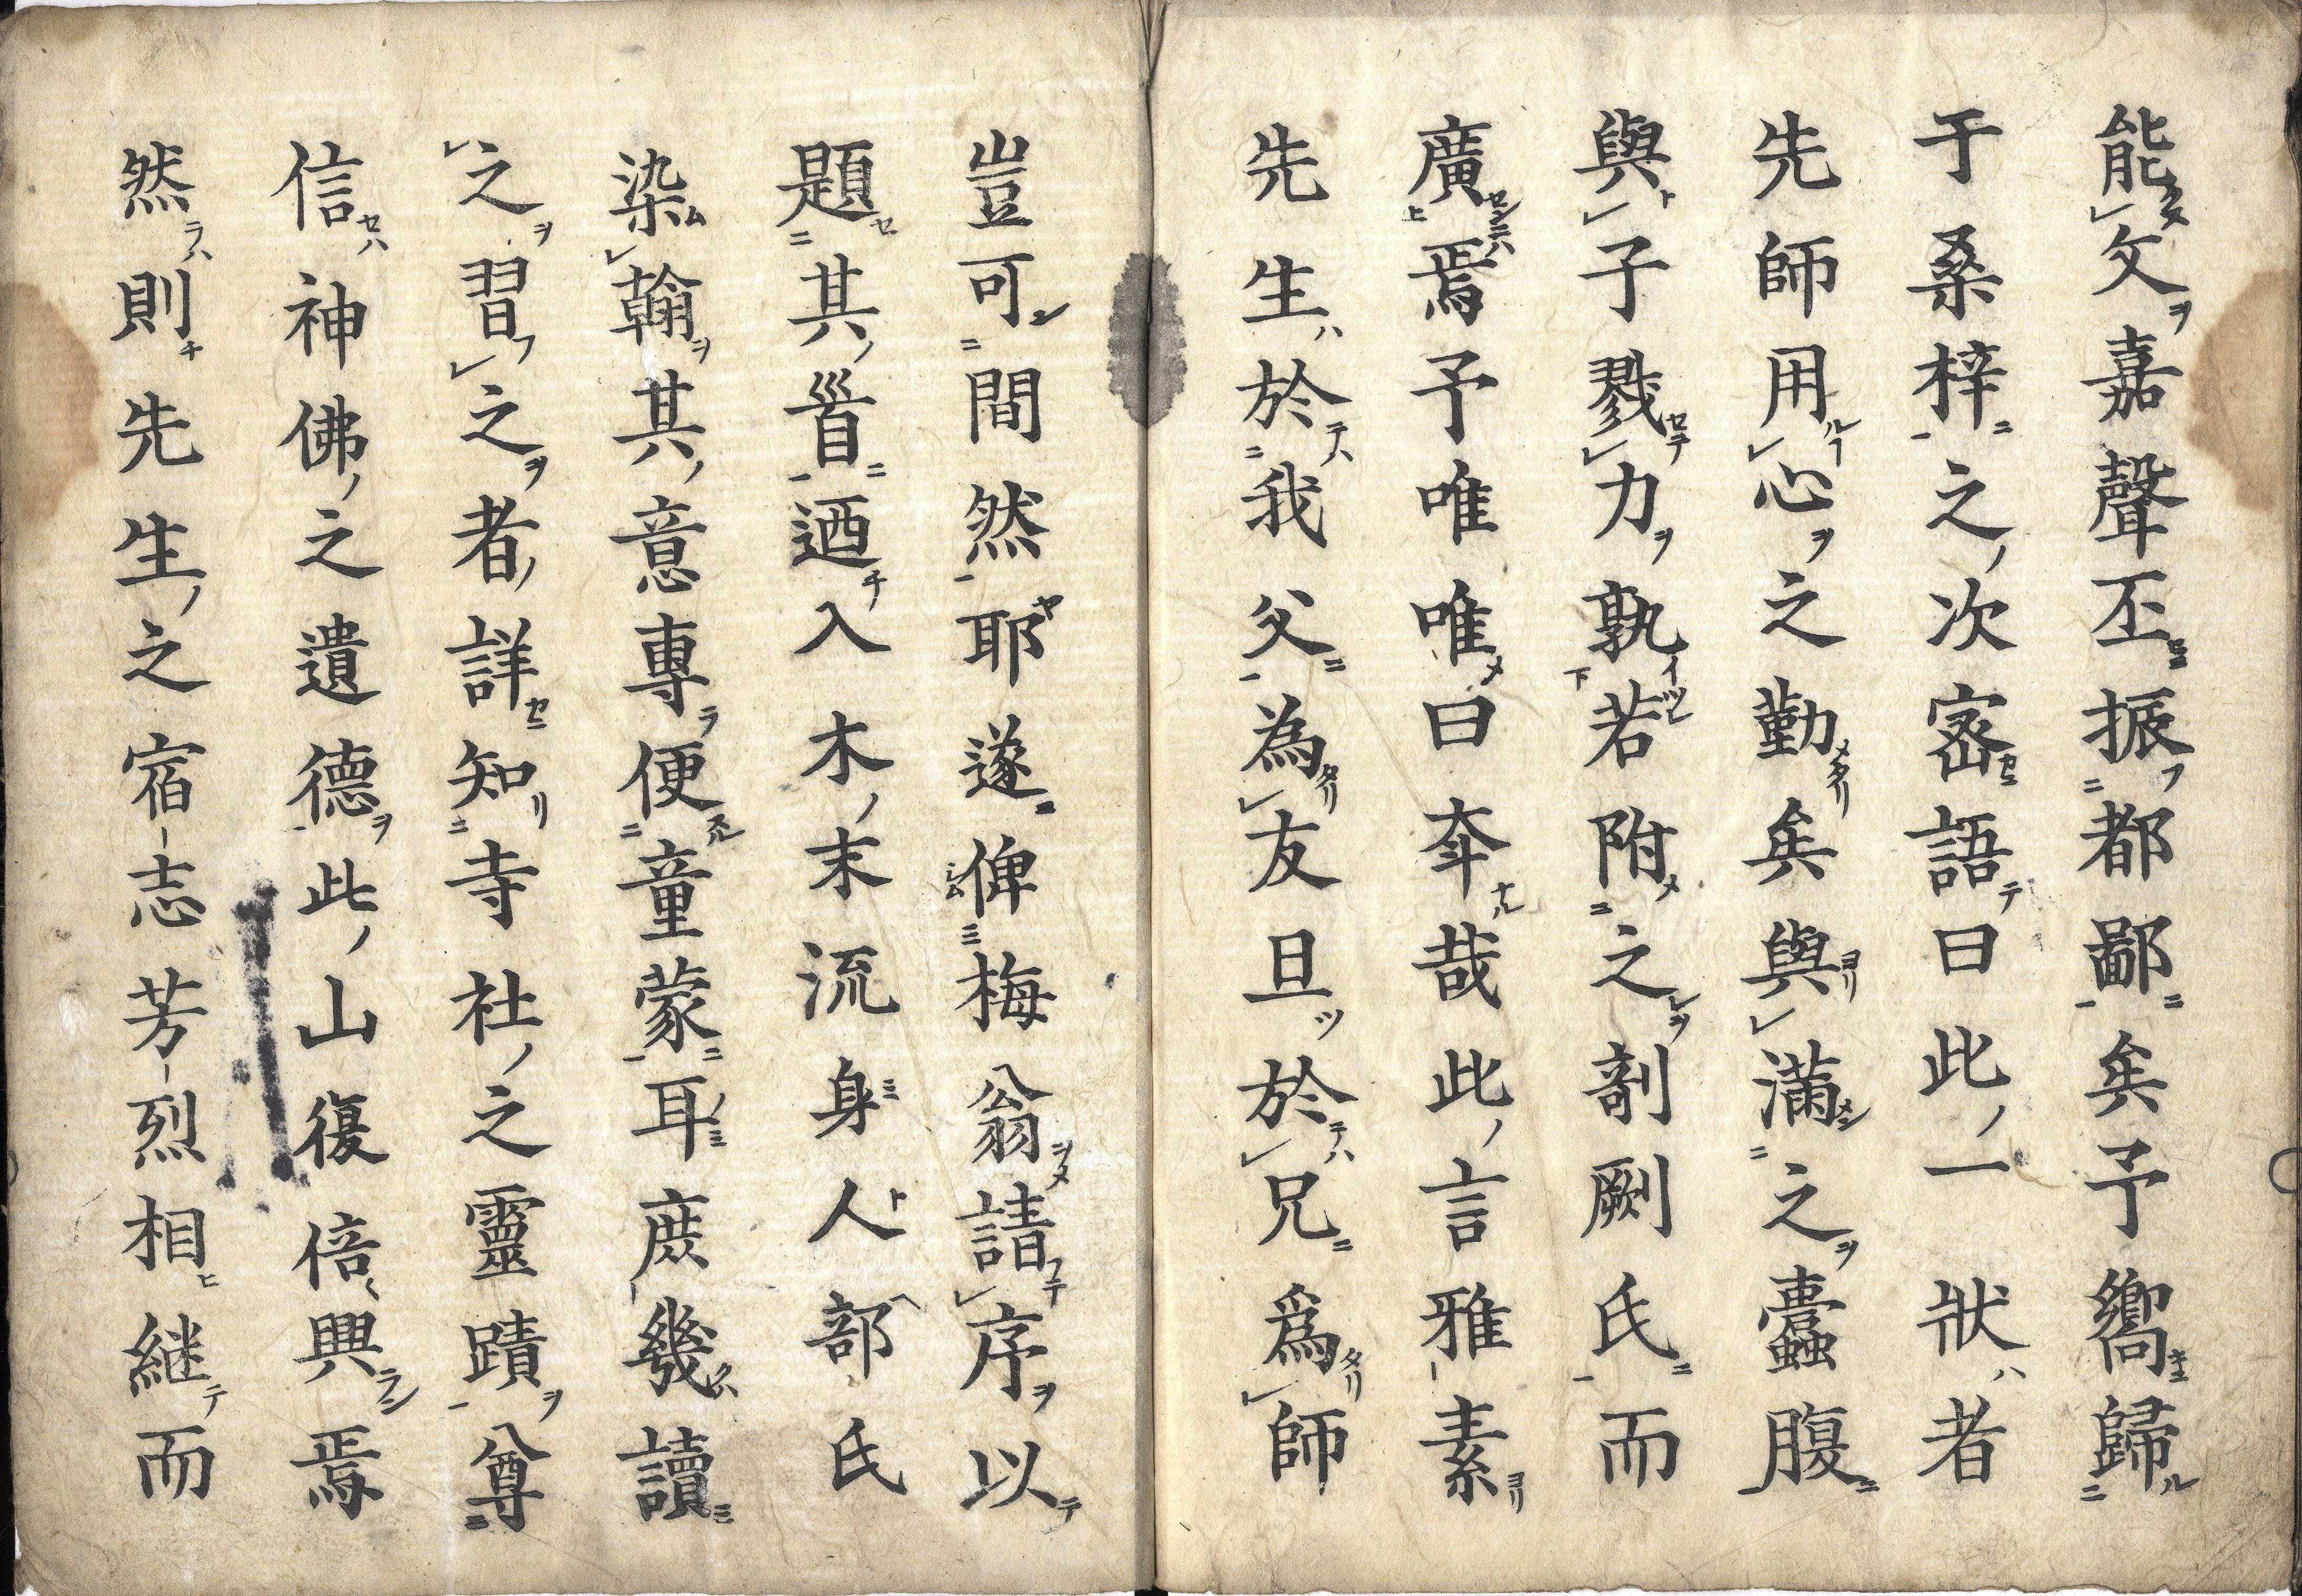 能文嘉聲丕振都鄙矣予嚮歸
于桑梓之次密語曰此一狀者
先師用心之勤矣與滿之蠹腹
與子戮力孰若附之剞劂氏而
廣焉予唯唯曰夲哉此言雅素
先生於我父為友且於兄爲師
豈可間然耶遂俾梅翁請序以
題其首迺入木末流身人部氏
染翰其意專便童蒙耳庶幾讀
之習之者詳知寺社之靈蹟尊
信神佛之遺德此山復倍興焉
然則先生之宿志芳烈相継而